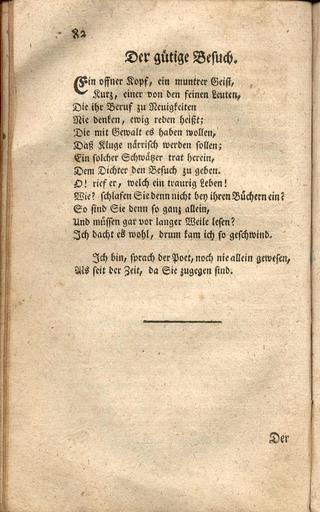 82
Der gütige Besuch.
Ein offner Kopf, ein muntrer Geist,
Kurz, einer von den feinen Leuten,
Die ihr Beruf zu Neuigkeiten
Nie denken, ewig reden heißt;
Die mit Gewalt es haben wollen,
Daß Kluge närrisch werden sollen;
Ein solcher Schwätzer trat herein,
Dem Dichter den Besuch zu geben.
O! rief er, welch ein traurig Leben!
Wie? schlafen Sie denn nicht bey ihren Büchern ein?
So sind Sie denn so ganz allein,
Und müssen gar vor langer Weile lesen?
Ich dacht es wohl, drum kam ich so geschwind.
Ich bin, sprach der Poet, noch nie allein gewesen,
Als seit der Zeit, da Sie zugegen sind.
Der